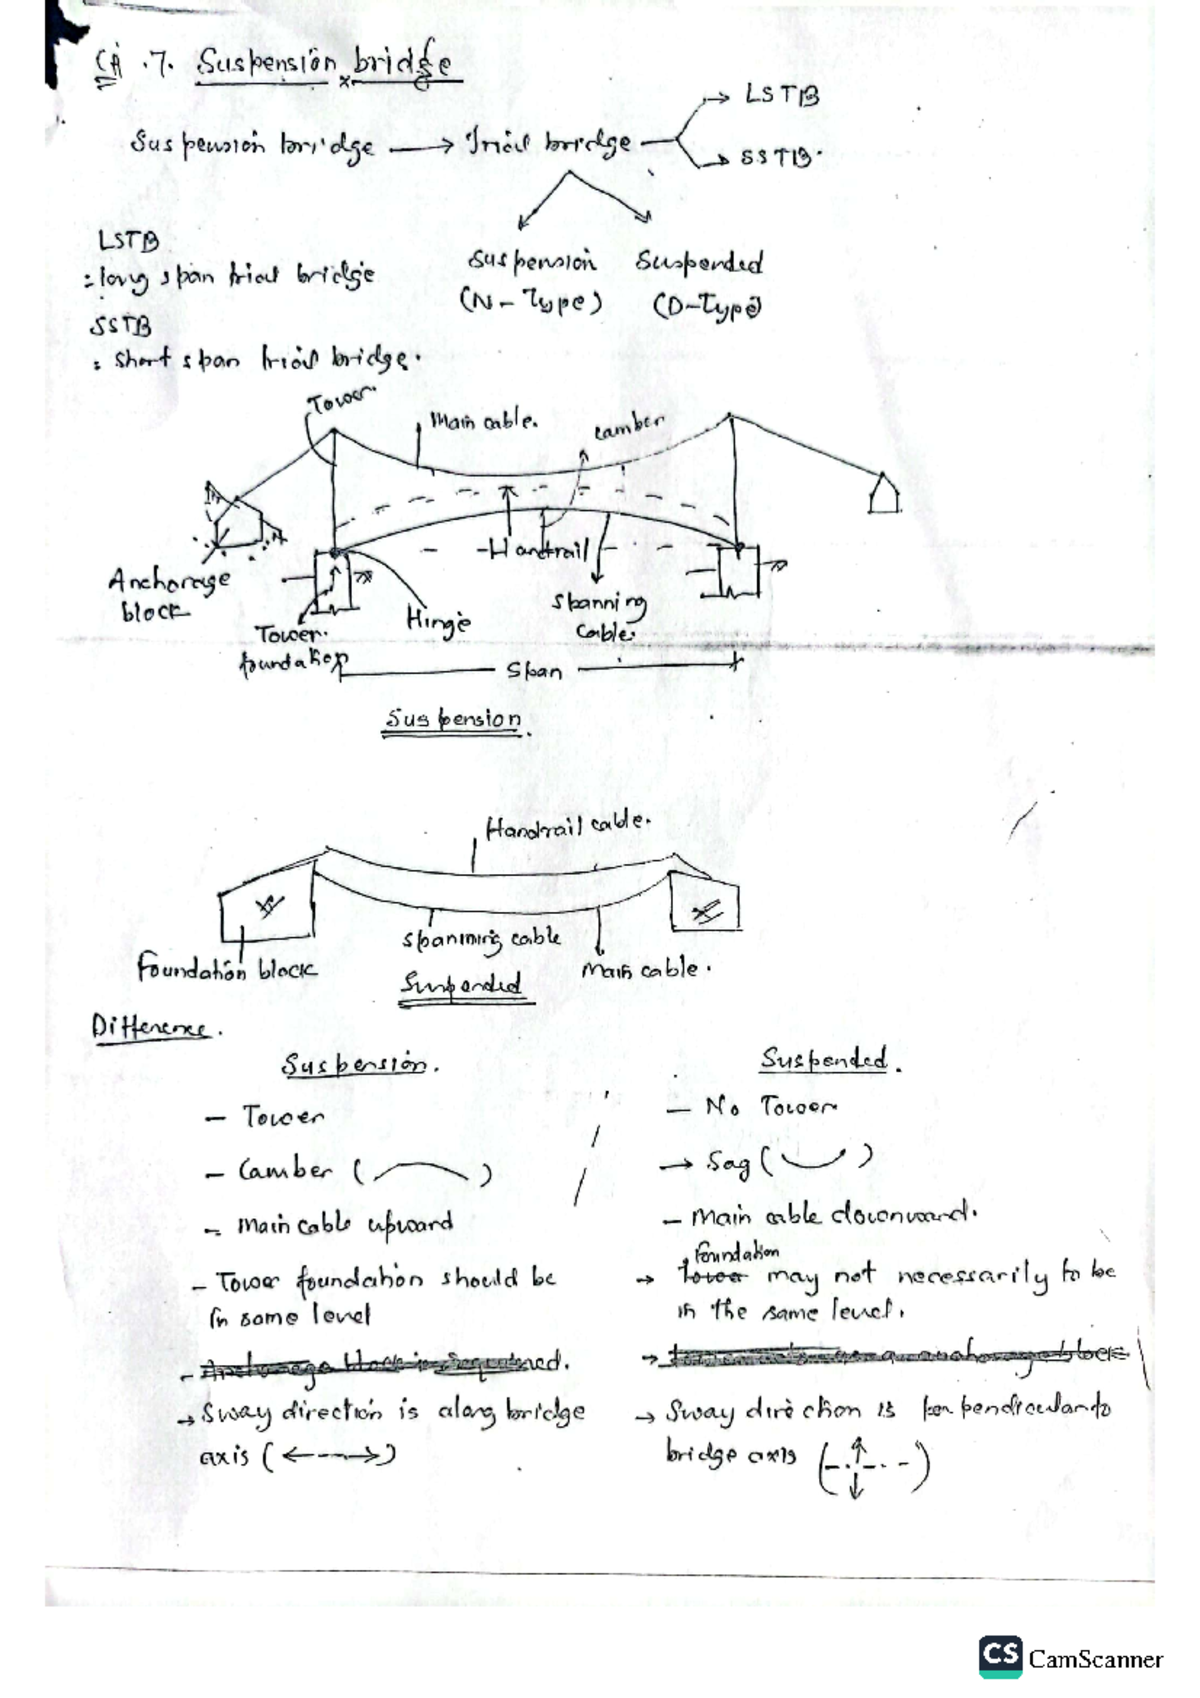 Ch .7. Suspension bridge
Suspension bridge → Trial bridge
→ LSTB
→ SSTB.
LSTB
: long span trial bridge
SSTB
: short span trial bridge.
Suspension
(N-Type)
Suspended
(D-Type)
Tower
Main cable.
camber
Anchorage
block
Tower.
foundation
Hinge
Handrail
Spanning
Cable.
Span
Suspension.
Handrail cable.
Foundation block
Spanning cable
Main cable.
Suspended
Difference.
Suspension.
- Tower
- Camber ( )
- Main cable upward
- Tower foundation should be
in same level
- Anchorage block is required.
→ Sway direction is along bridge
axis (←--→)
Suspended.
- No Tower
→ Sag ( )
- Main cable downward.
foundation
→ tower may not necessarily to be
in the same level.
→ anchorage block
→ Sway direction is perpendicular to
bridge axis
CS CamScanner